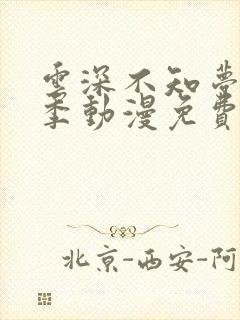 雲深不知夢
季動漫免費
北京-西安-阿